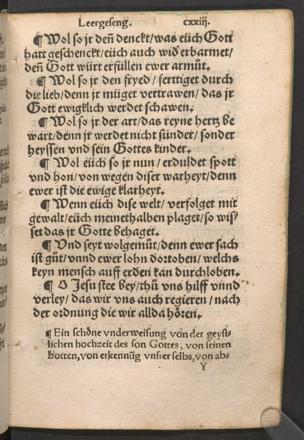 Leergeseng. cxxiij.
¶ Wol so jr deñ denckt/was eüch Gott
hatt geschenckt/eüch auch wid erbarmet/
deñ Gott würt erfüllen ewer armůt.
¶ Wol so jr den fryed/ferttiget durch
die lieb/denn jr müget vertrawen/das jr
Gott ewigklich werdet schawen.
¶ Wol so jr der art/das reyne hertz be
wart/denn jr werdet nicht sündet/sonder
heyssen vnd sein Gottes kinder.
¶ Wol eüch so jr nun/erduldet spott
vnd hon/von wegen diser warheyt/denn
ewer ist die ewige klarheyt.
¶ Wenn eüch dise welt/verfolget mit
gewalt/eüch meinethalben plaget/so wis/
set das jr Gotte behaget.
¶ Vnd seyt wolgemůt/denn ewer sach
ist gůt/vnnd ewer lohn dortoben/welchs
keyn mensch auff erden kan durchloben.
¶ O Jesu stee bey/thů vns hilff vnnd
verley/das wir vns auch regieren/nach
der ordnung die wir allda hören.
¶ Ein schöne vnderweisung von der geyst
lichen hochzeit des son Gottes, von seinen
Botten, von erkennũg vnser selbs, von ab-
Y